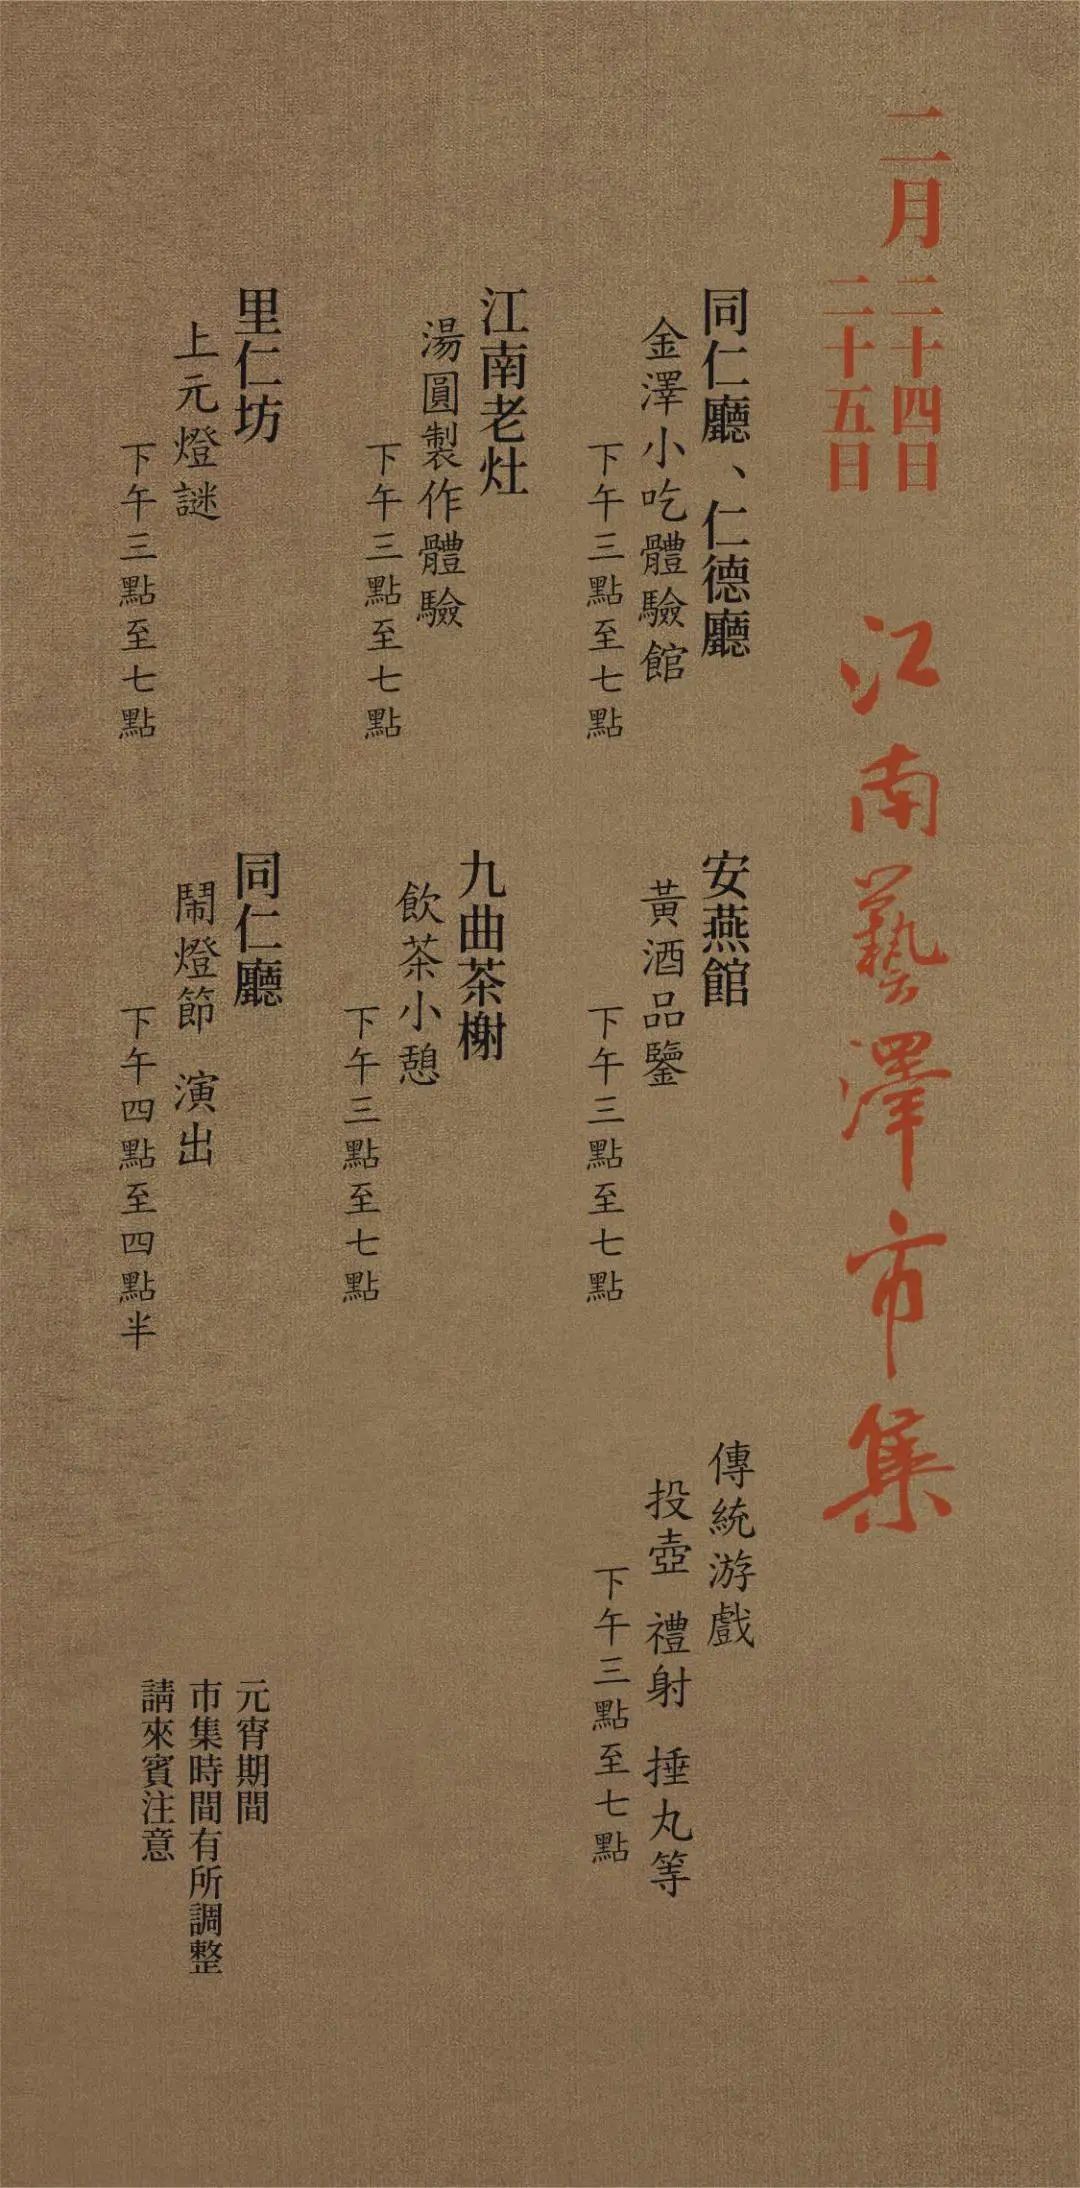 二月
二十四日
二十五日
江南藝澤市集
同仁廳、仁德廳
金澤小吃體驗館
下午三點至七點
江南老灶
湯圓製作體驗
下午三點至七點
里仁坊
上元燈謎
下午三點至七點
安燕館
黃酒品鑒
下午三點至七點
九曲茶榭
飲茶小憩
下午三點至七點
同仁廳
鬧燈節 演出
下午四點至四點半
傳統游戲
投壺 禮射 捶丸等
下午三點至七點
元宵期間
市集時間有所調整
請來賓注意